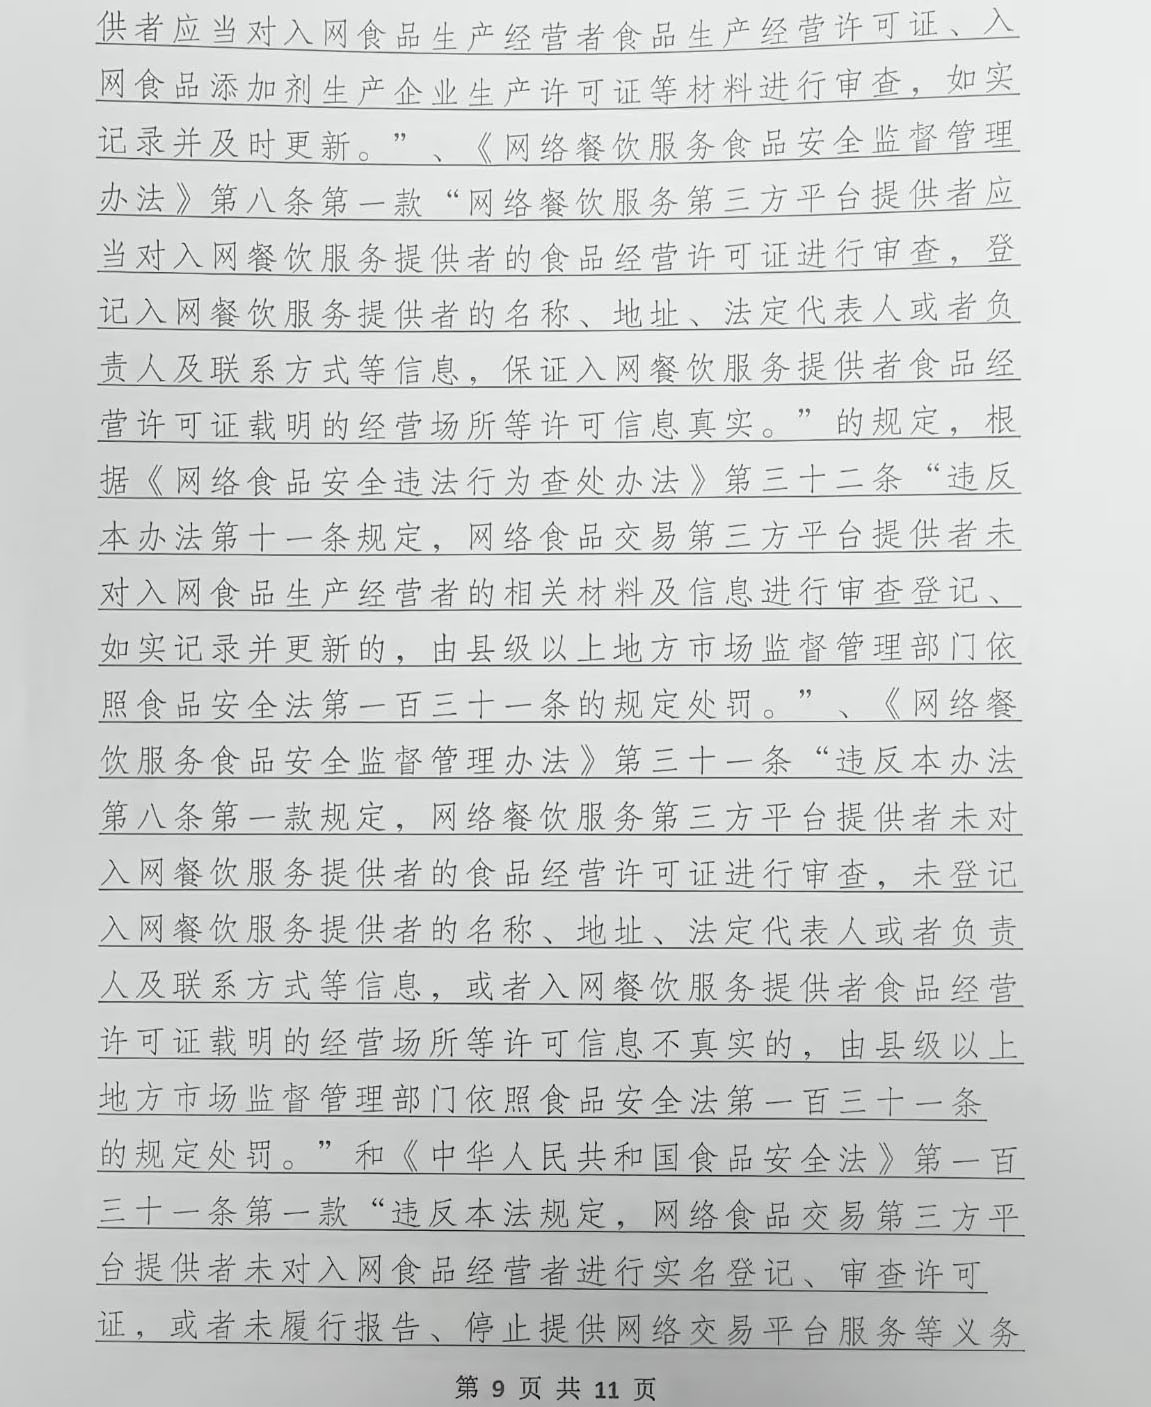 供者应当对入网食品生产经营者食品生产经营许可证、入
网食品添加剂生产企业生产许可证等材料进行审查，如实
记录并及时更新。”、《网络餐饮服务食品安全监督管理
办法》第八条第一款“网络餐饮服务第三方平台提供者应
当对入网餐饮服务提供者的食品经营许可证进行审查，登
记入网餐饮服务提供者的名称、地址、法定代表人或者负
责人及联系方式等信息，保证入网餐饮服务提供者食品经
营许可证载明的经营场所等许可信息真实。”的规定，根
据《网络食品安全违法行为查处办法》第三十二条“违反
本办法第十一条规定，网络食品交易第三方平台提供者未
对入网食品生产经营者的相关材料及信息进行审查登记、
如实记录并更新的，由县级以上地方市场监督管理部门依
照食品安全法第一百三十一条的规定处罚。”、《网络餐
饮服务食品安全监督管理办法》第三十一条“违反本办法
第八条第一款规定，网络餐饮服务第三方平台提供者未对
入网餐饮服务提供者的食品经营许可证进行审查，未登记
入网餐饮服务提供者的名称、地址、法定代表人或者负责
人及联系方式等信息，或者入网餐饮服务提供者食品经营
许可证载明的经营场所等许可信息不真实的，由县级以上
地方市场监督管理部门依照食品安全法第一百三十一条
的规定处罚。”和《中华人民共和国食品安全法》第一百
三十一条第一款“违反本法规定，网络食品交易第三方平
台提供者未对入网食品经营者进行实名登记、审查许可
证，或者未履行报告、停止提供网络交易平台服务等义务
第 9 页 共 11 页